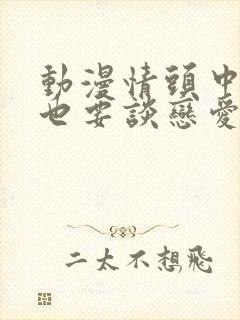 動漫情頭中
也要談戀愛
二太不想飛